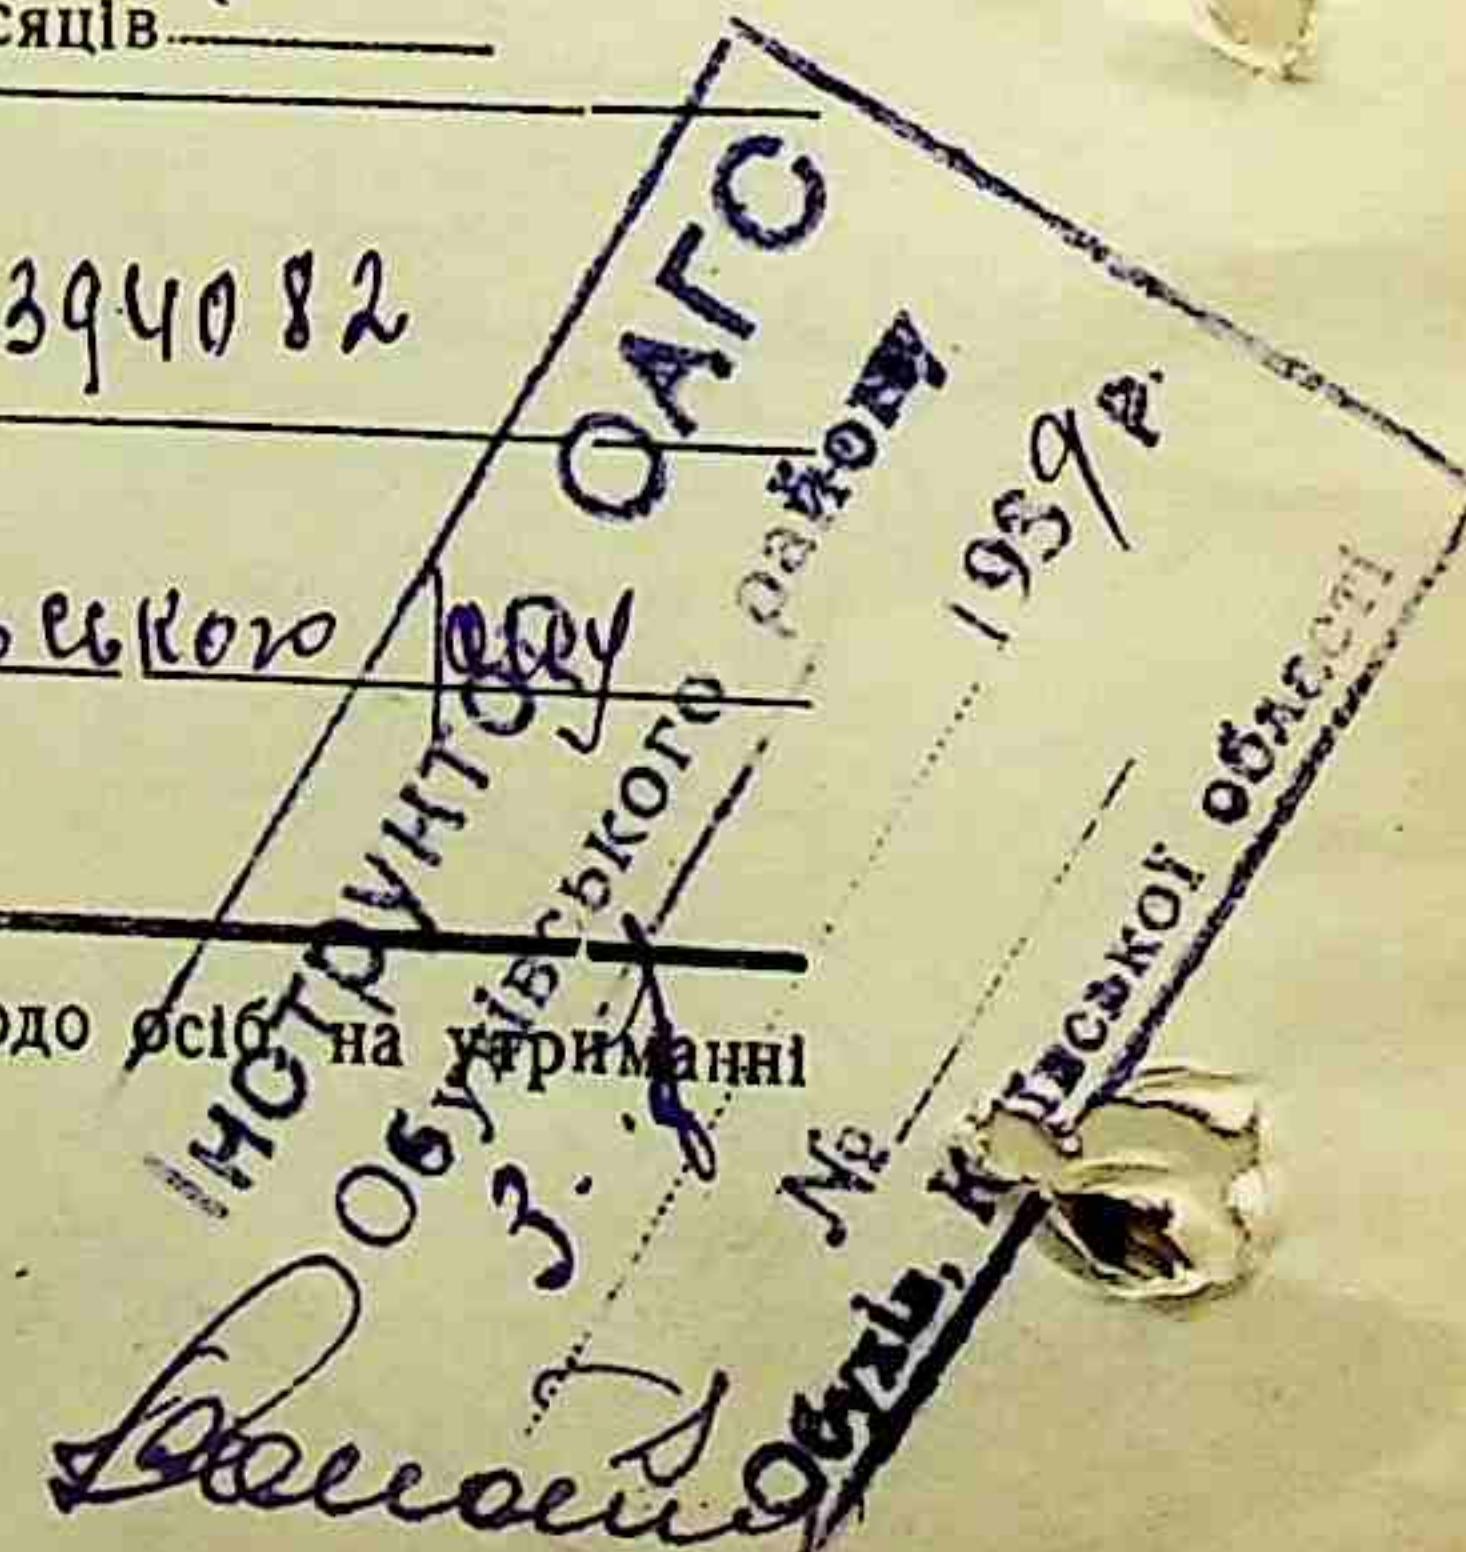 сяців
394082
ського
одо осіб, на утриманні
ІНСТРУКТОР ОАГС
Обухівського району
3.
1959 р.
№
Обухів, Київської області